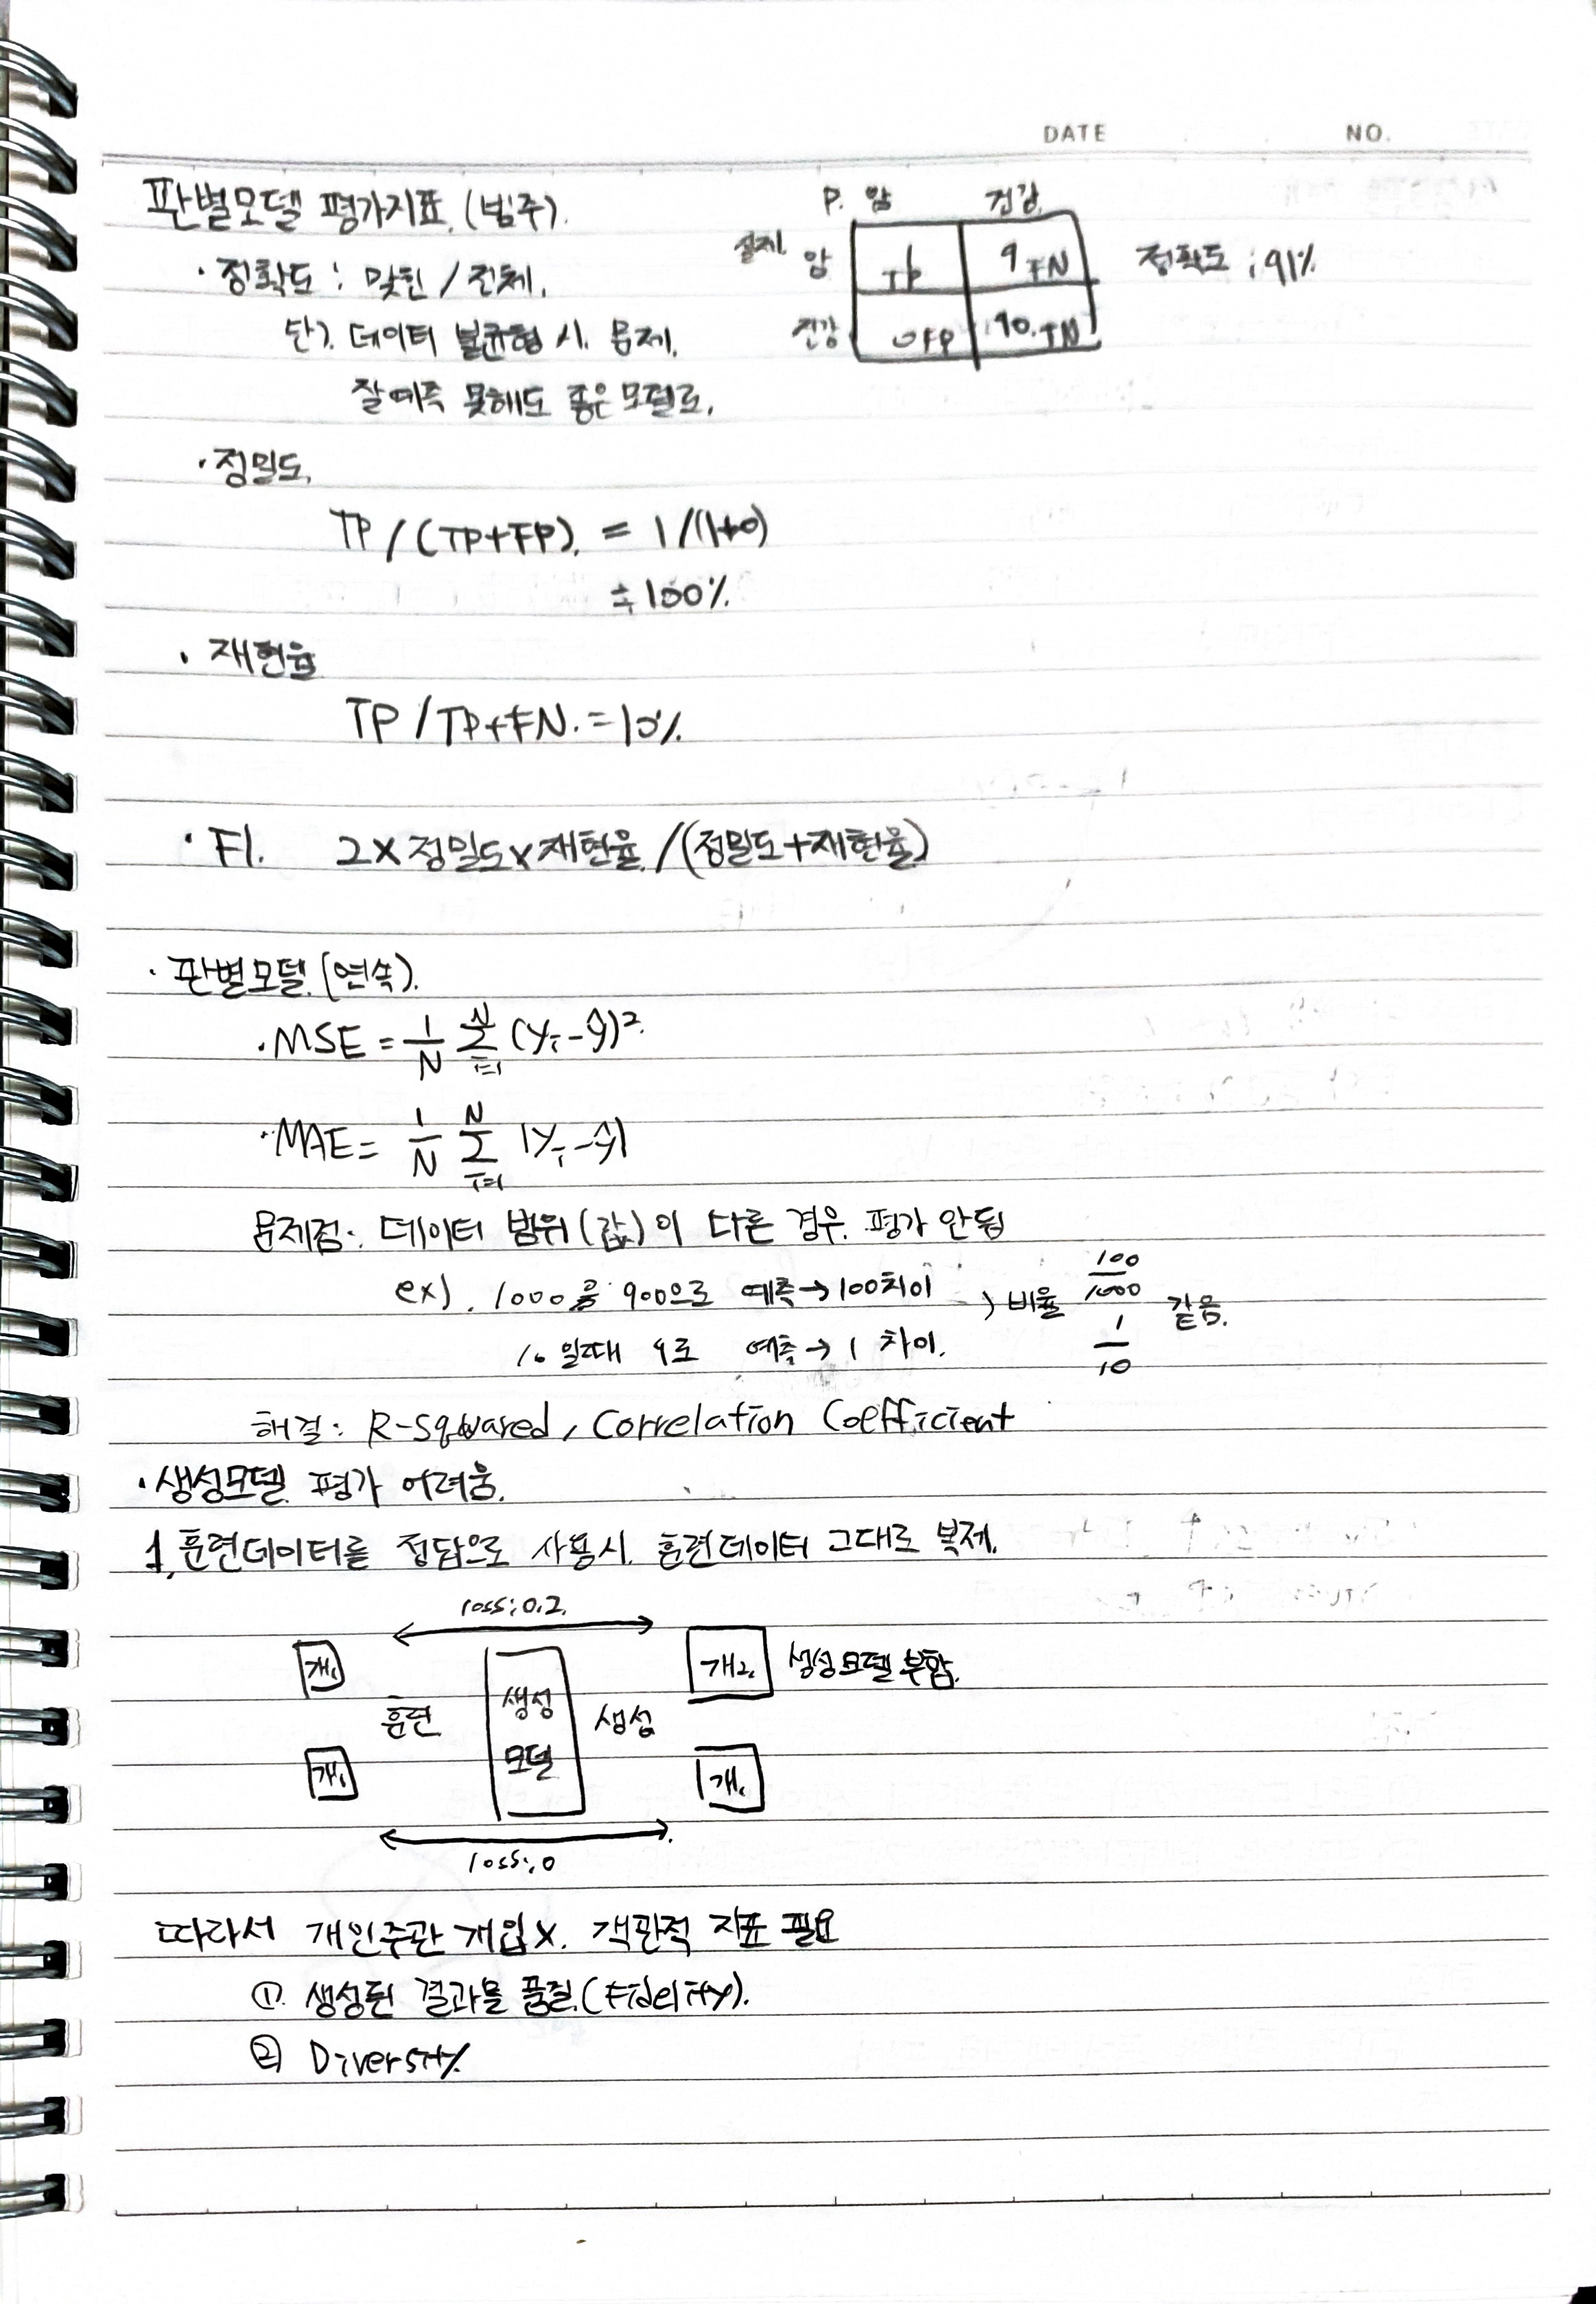 DATE NO.
판별모델 평가지표. (범주).
P. 암 건강
실제 암 1 TP 9 FN
건강 0 FP 90. TN
정확도 ; 91%
· 정확도 : 맞힌 / 전체.
단). 데이터 불균형 시. 문제.
잘예측 못해도 좋은모델로.
· 정밀도.
TP / (TP+FP). = 1/(1+0)
≒100%.
· 재현율
TP / TP+FN. = 10%.
· F1. 2×정밀도×재현율./(정밀도+재현율)
· 판별모델. (연속).
· MSE = 1/N Σ i=1 N (yi - ŷ)².
· MAE = 1/N Σ i=1 N |yi - ŷ|
문제점:. 데이터 범위(값)이 다른 경우. 평가 안됨
ex). 1000을 900으로 예측→100차이
10 일때 9로 예측→ 1 차이.
) 비율 100/1000 1/10 같음.
해결: R-squared, Correlation Coefficient
· 생성모델. 평가 어려움.
1. 훈련데이터를 정답으로 사용시. 훈련데이터 그대로 복제.
loss: 0.2.
개1 개2. 생성모델 부합.
훈련 생성 모델 생성
개1 개1
loss: 0
따라서 개인주관 개입X. 객관적 지표 필요
①. 생성된 결과물 품질.(Fidelity).
② Diversity.